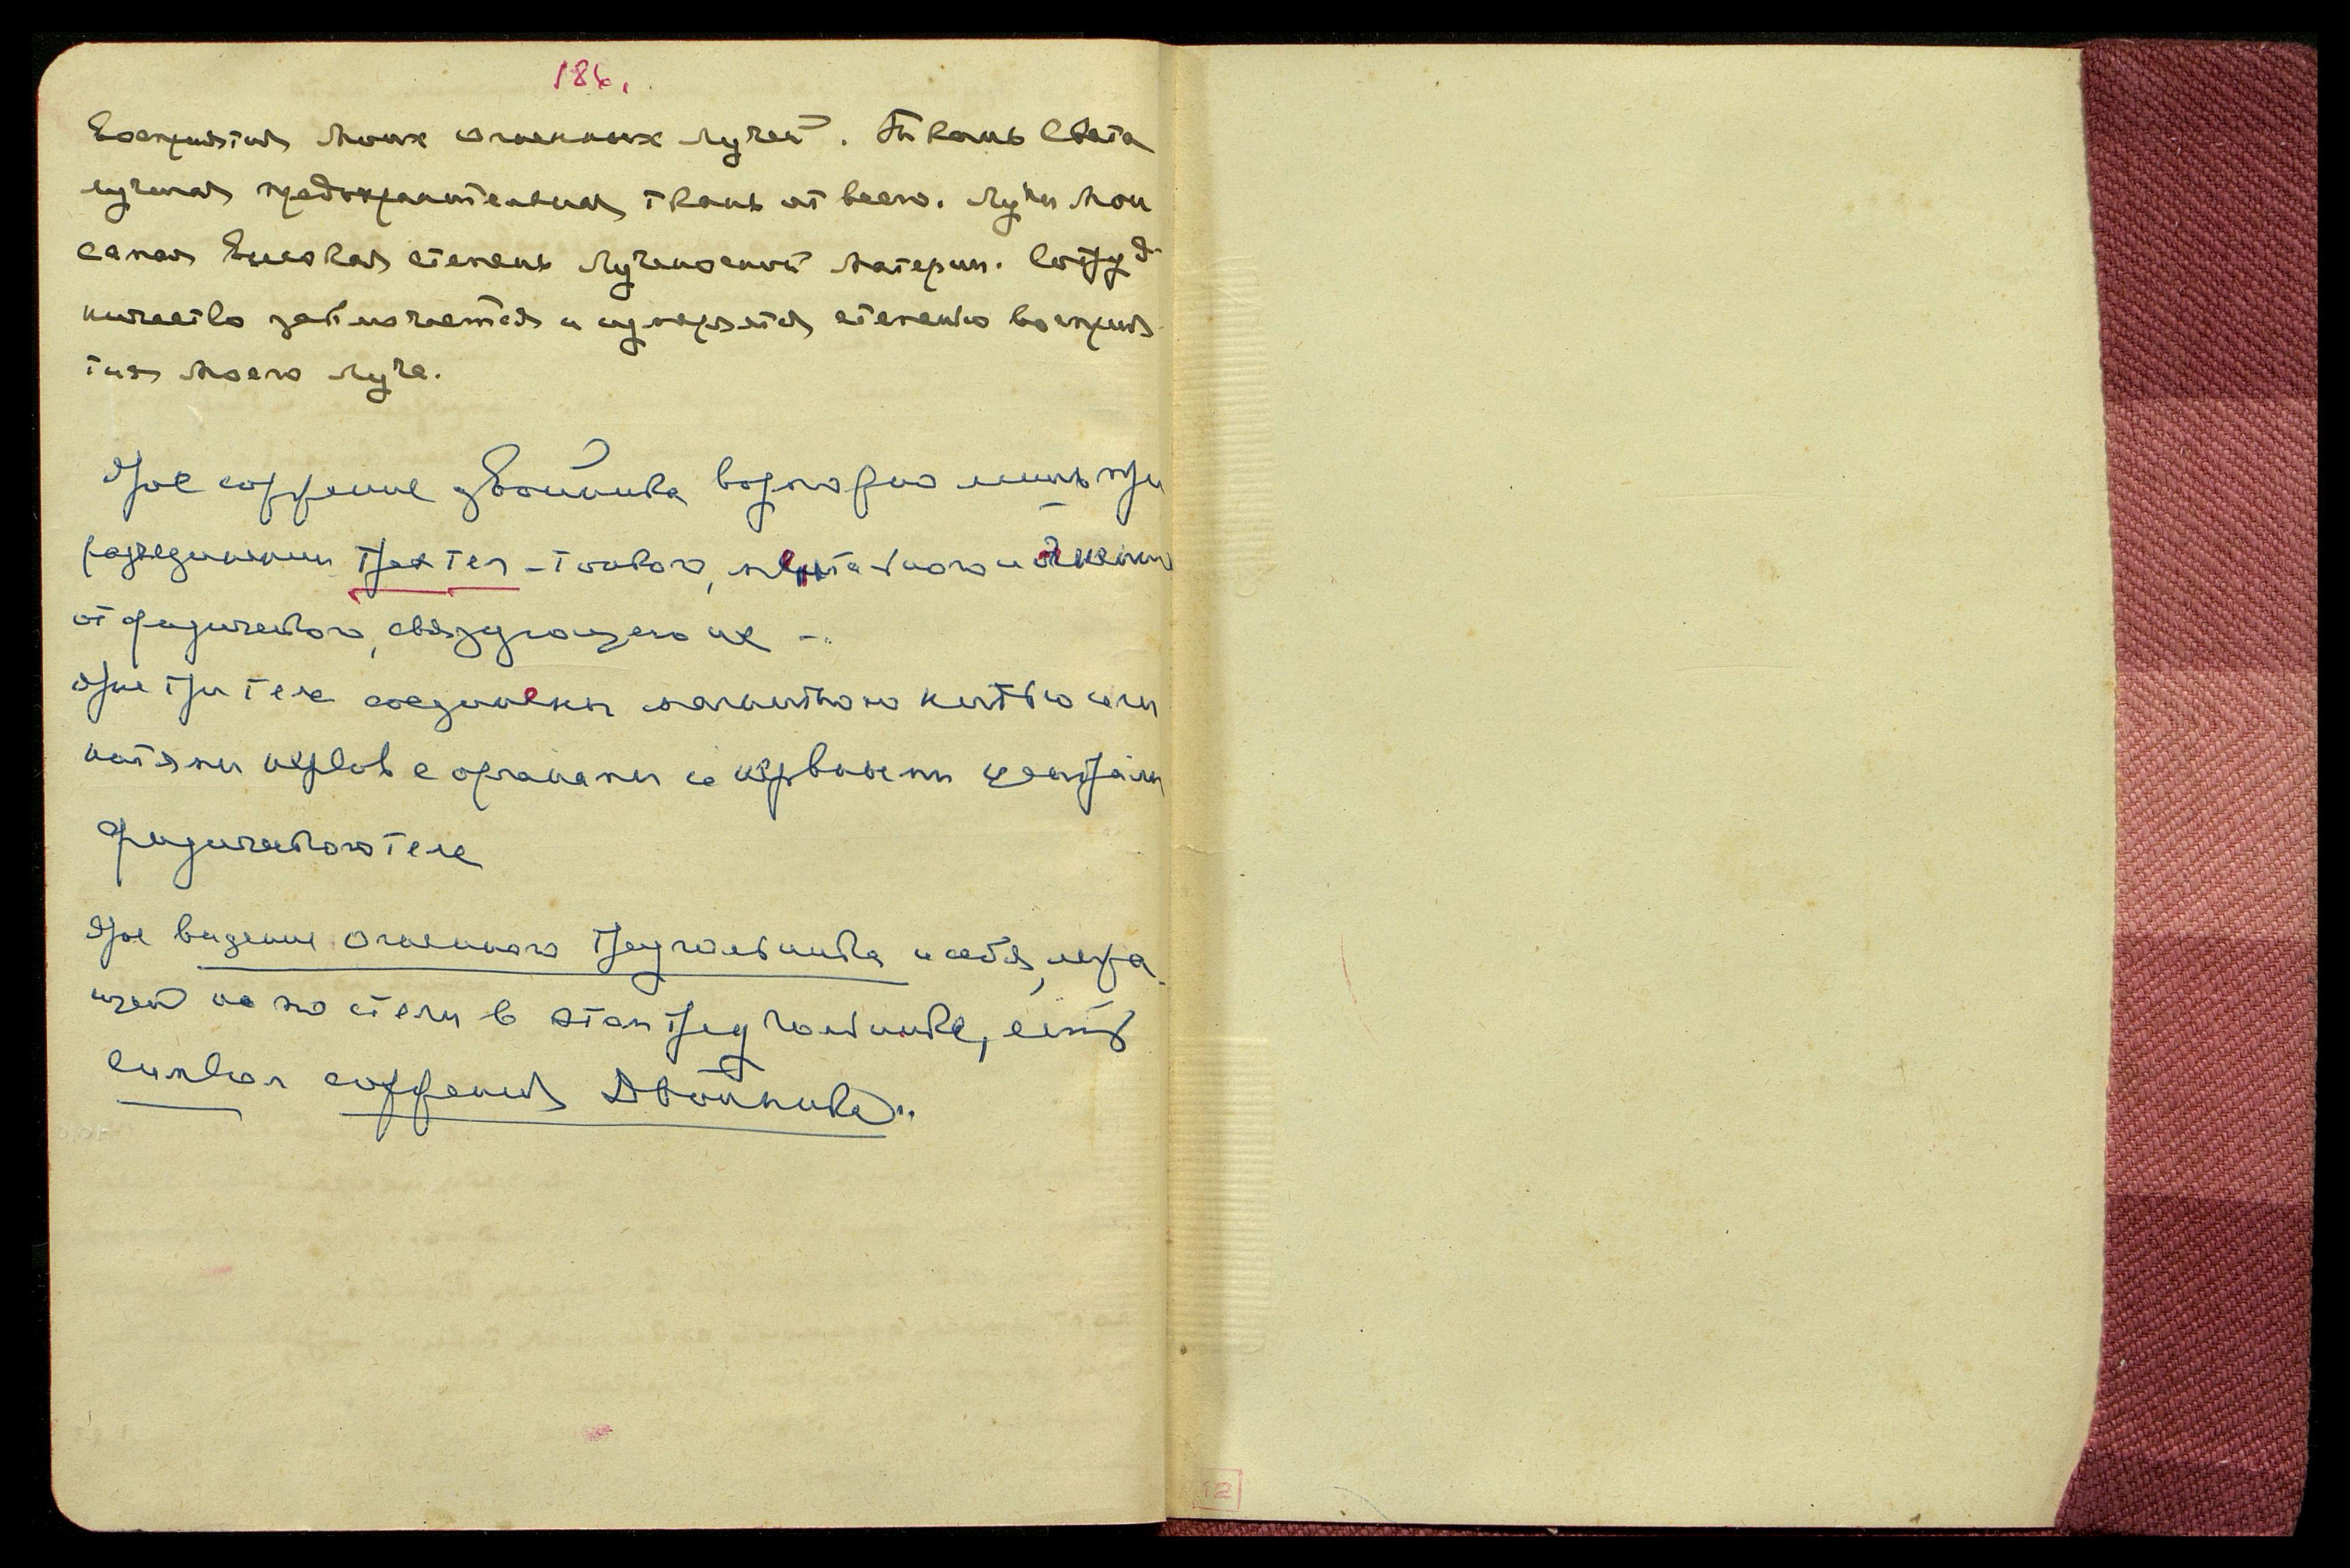 186.
Восприятия Моих огненных лучей. Ткань Света
лучшая предохранительная ткань от всего. Лучи Мои
самая высокая степень Лученосной Материи. Сотруд-
ничество заключается и измеряется степенью восприя-
тия Моего луча.
Ярое сожжение двойника возможно лишь при
разъединении трех тел – тонкого, ментального и
от физического, связующего их –
Ярые три тела соединены магнитною нитью или
нитями нервов с органами и нервными центрами
физического тела
Ярое видение огненного треугольника и себя, лежа-
щей на постели в этом треугольнике, есть
символ сожжения Двойника".
12